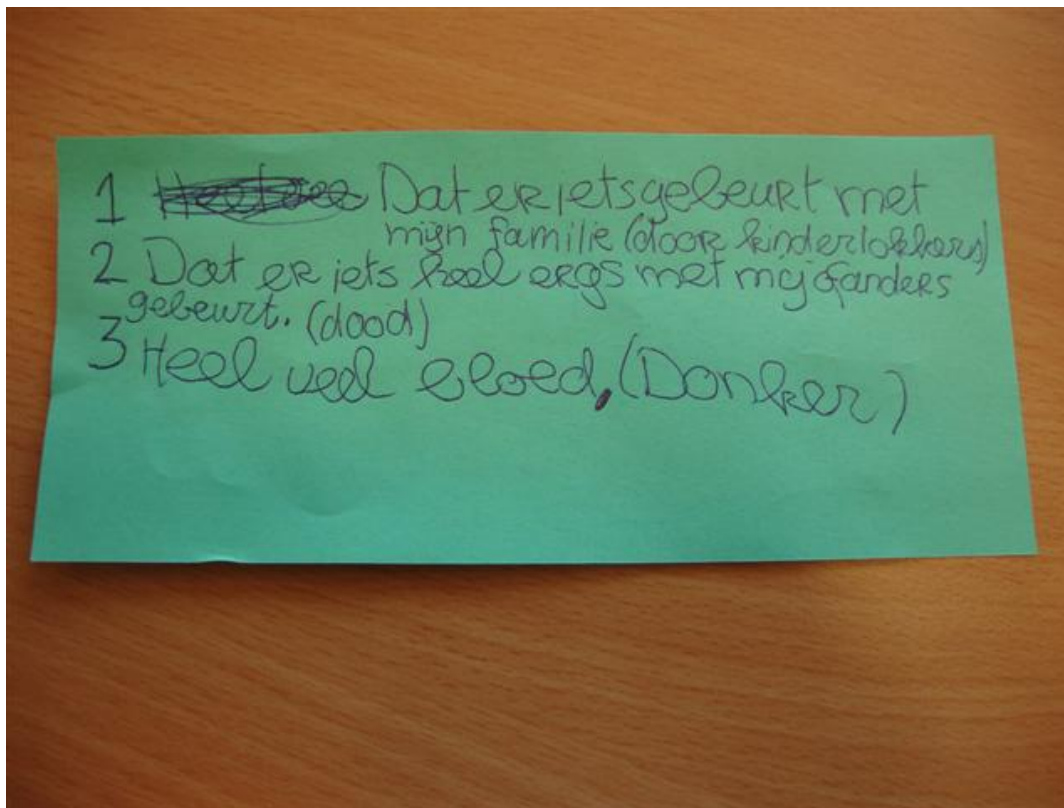 1 Dat er iets gebeurt met
mijn familie (door kinderlokkers)
2 Dat er iets heel ergs met mij of anders
gebeurt. (dood)
3 Heel veel bloed, (Donker)